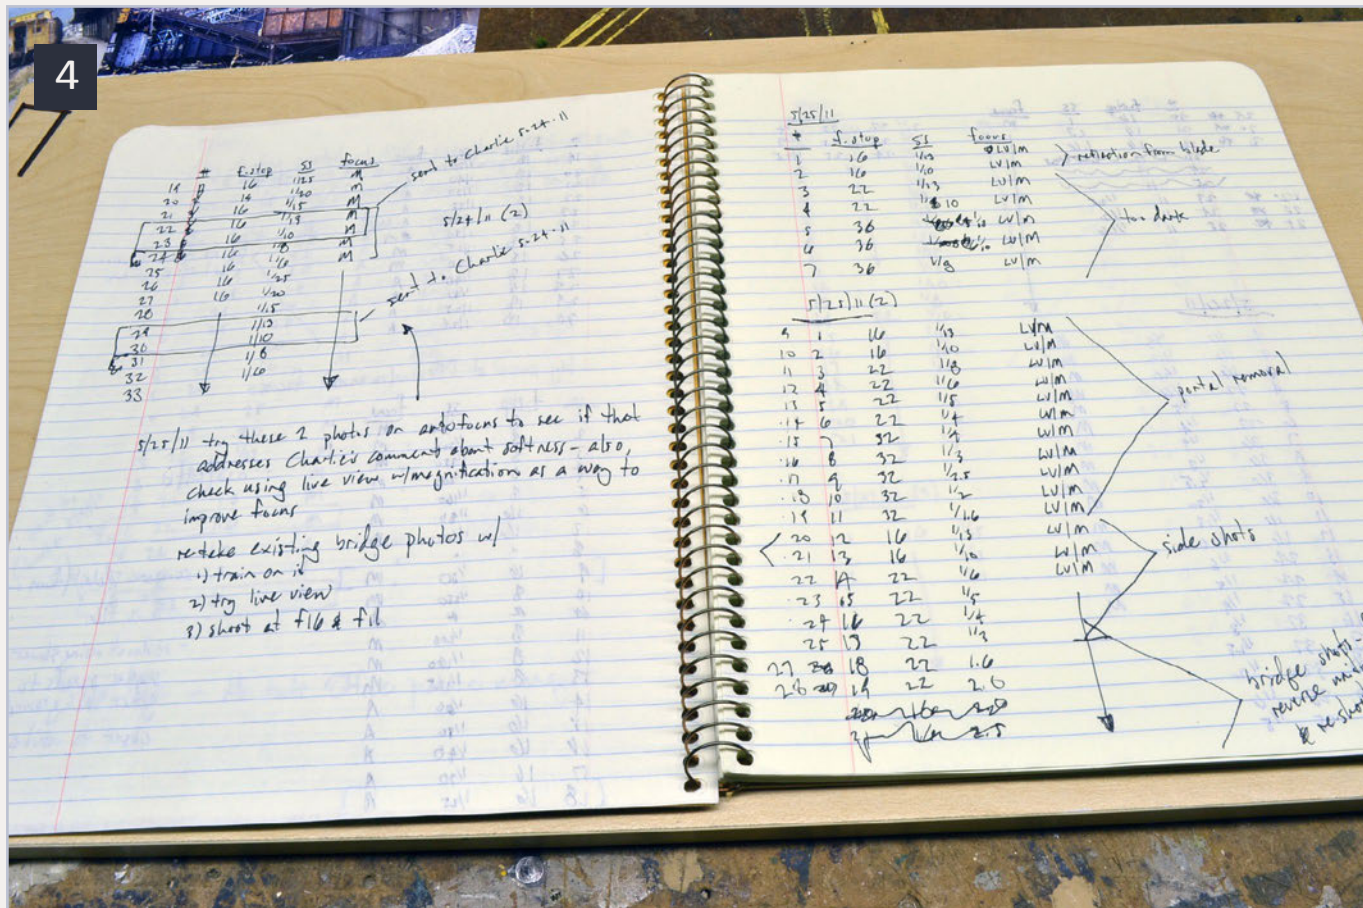 4
# f.stop SS focus
19 16 1/25 M
20 16 1/20 M
21 16 1/15 M
22 16 1/13 M
23 16 1/10 M
24 16 1/8 M
25 16 1/6
26 16 1/25
27 16 1/20
28 1/15
29 1/13
30 1/10
31 1/8
32 1/6
33
sent to Charlie 5-24-11
5/24/11 (2)
sent to Charlie 5-24-11
5/25/11 try these 2 photos on autofocus to see if that
addresses Charlie's comment about softness - also,
check using live view w/magnification as a way to
improve focus
re-take existing bridge photos w/
1) train on it
2) try live view
3) shoot at f16 & f11
5/25/11
# f.stop SS focus
1 16 1/13 LV/M
2 16 1/10 LV/M
3 22 1/13 LV/M
4 22 10 LV/M
5 36 LV/M
6 36 LV/M
7 36 1/8 LV/M
reflection from blade
too dark
5/25/11 (2)
9 1 16 1/13 LV/M
10 2 16 1/10 LV/M
11 3 22 1/8 LV/M
12 4 22 1/6 LV/M
13 5 22 1/5 LV/M
14 6 22 1/4 LV/M
15 7 32 1/4 LV/M
16 8 32 1/3 LV/M
17 9 32 1/2.5 LV/M
18 10 32 1/2 LV/M
19 11 32 1/1.6 LV/M
20 12 16 1/13 LV/M
21 13 16 1/10 LV/M
22 14 22 1/6 LV/M
23 15 22 1/5
24 16 22 1/4
25 22 1/3
27 18 22 1.6
28 19 22 2.0
2.5
portal removal
side shots
bridge shots -
reverse
& re-shoot